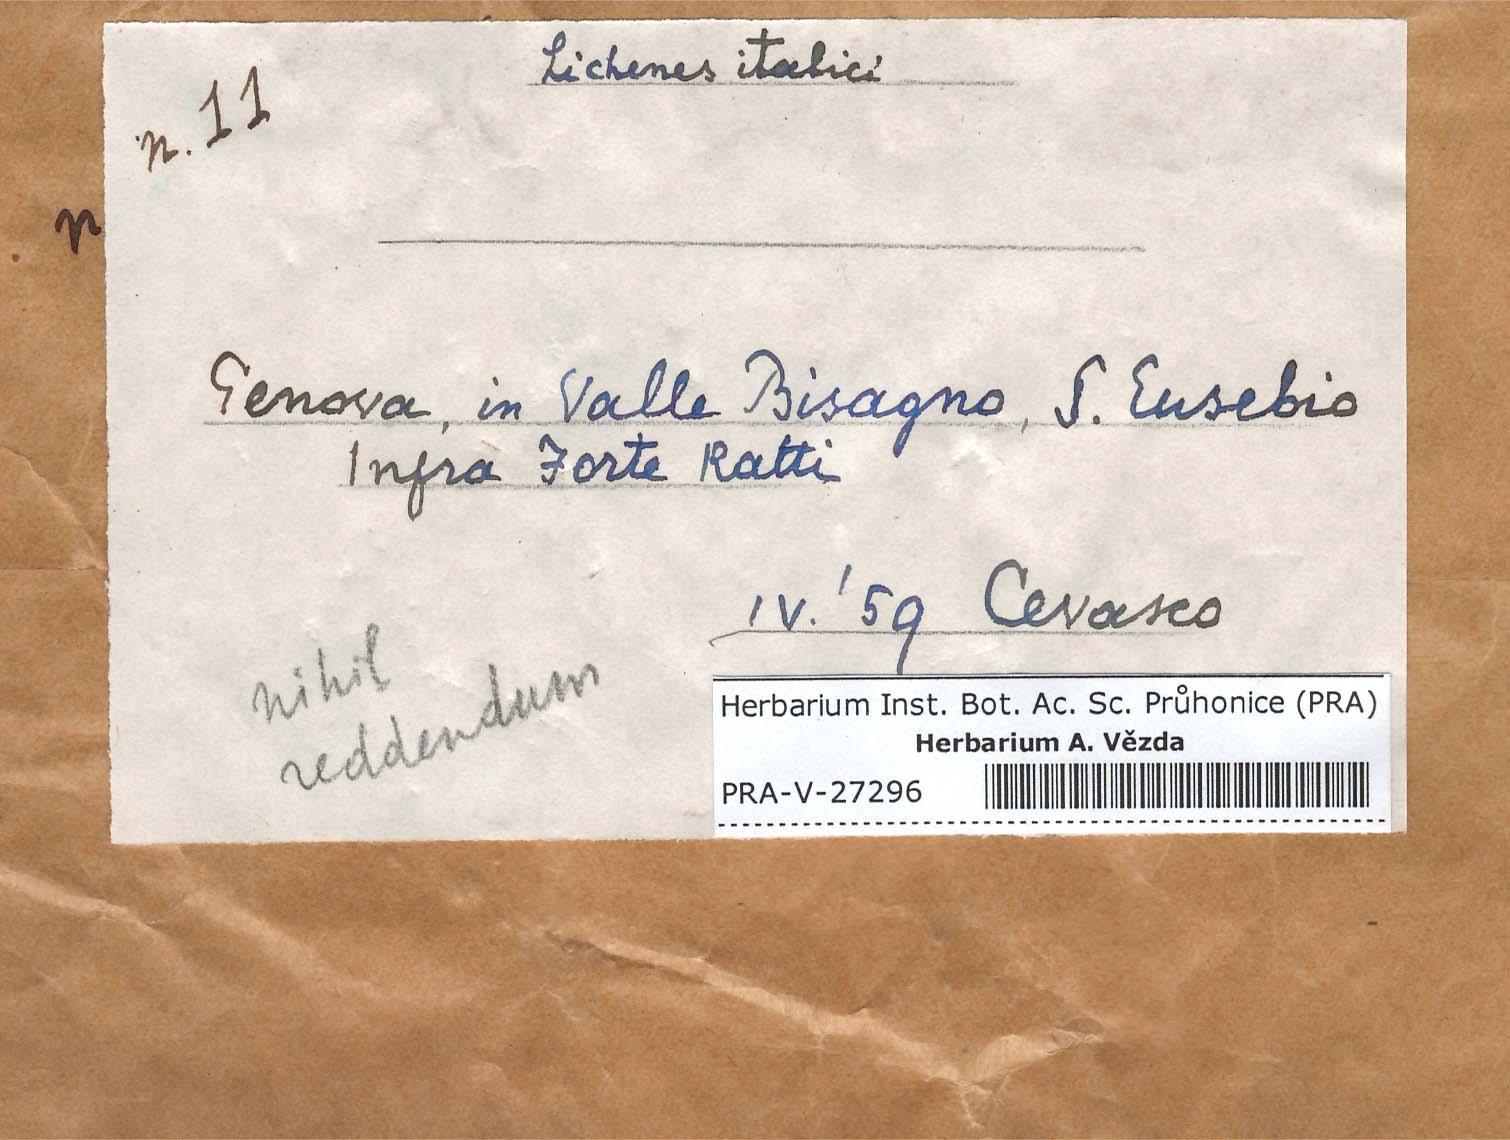 Lichenes italici
n. 11
n
Genova, in Valle Bisagno, S. Eusebio
Infra Forte Ratti
IV. '59 Cevasco
nihil
reddendum
Herbarium Inst. Bot. Ac. Sc. Průhonice (PRA)
Herbarium A. Vězda
PRA-V-27296